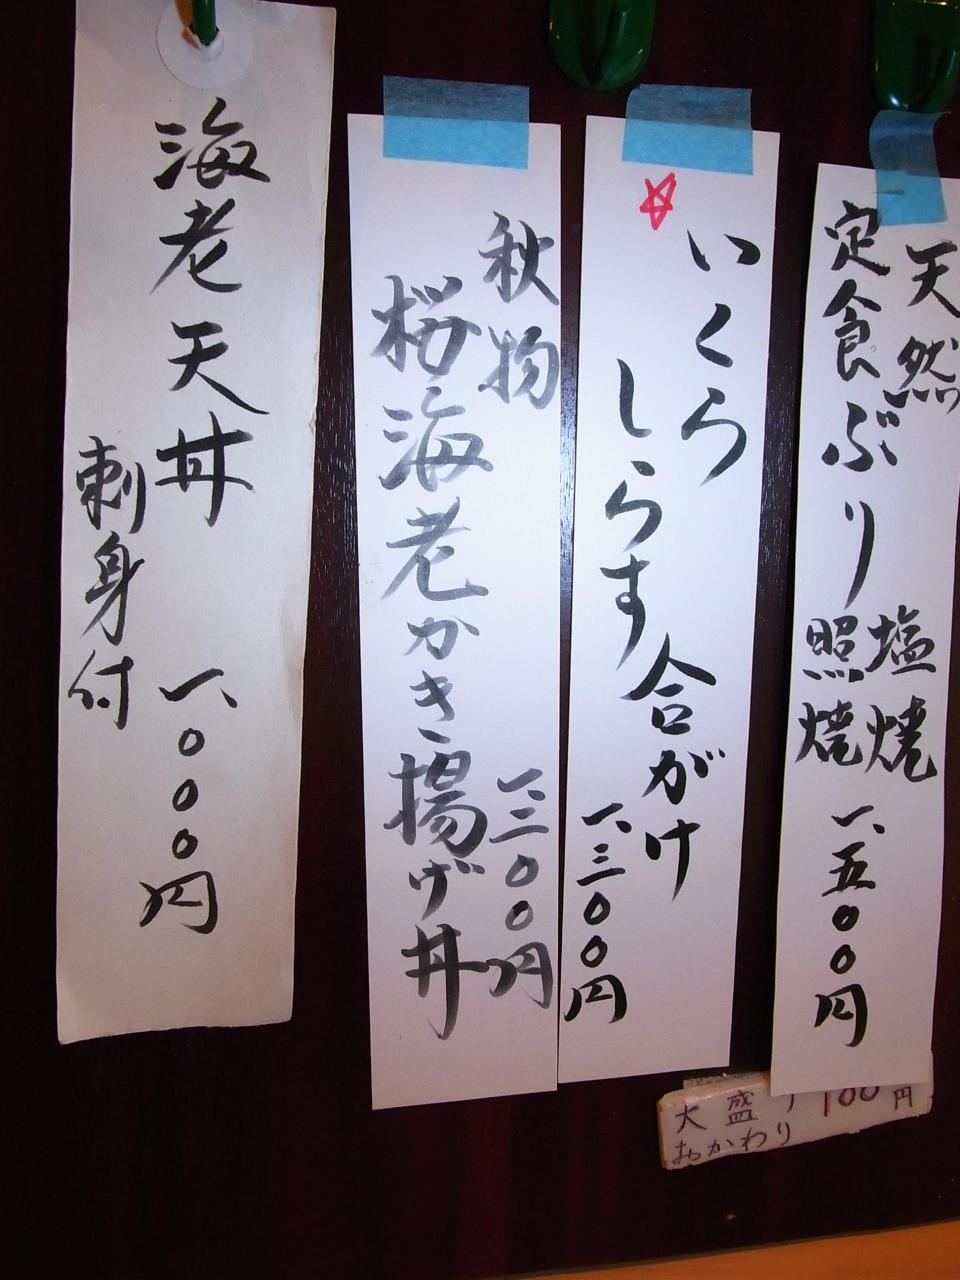 天然
定食ぶり
塩焼
照焼
一、五〇〇円
いくら
しらす
合がけ
一、三〇〇円
秋物
桜海老かき揚げ丼
一、三〇〇円
海老天丼 一、〇〇〇円
刺身付
大盛り 100円
おかわり